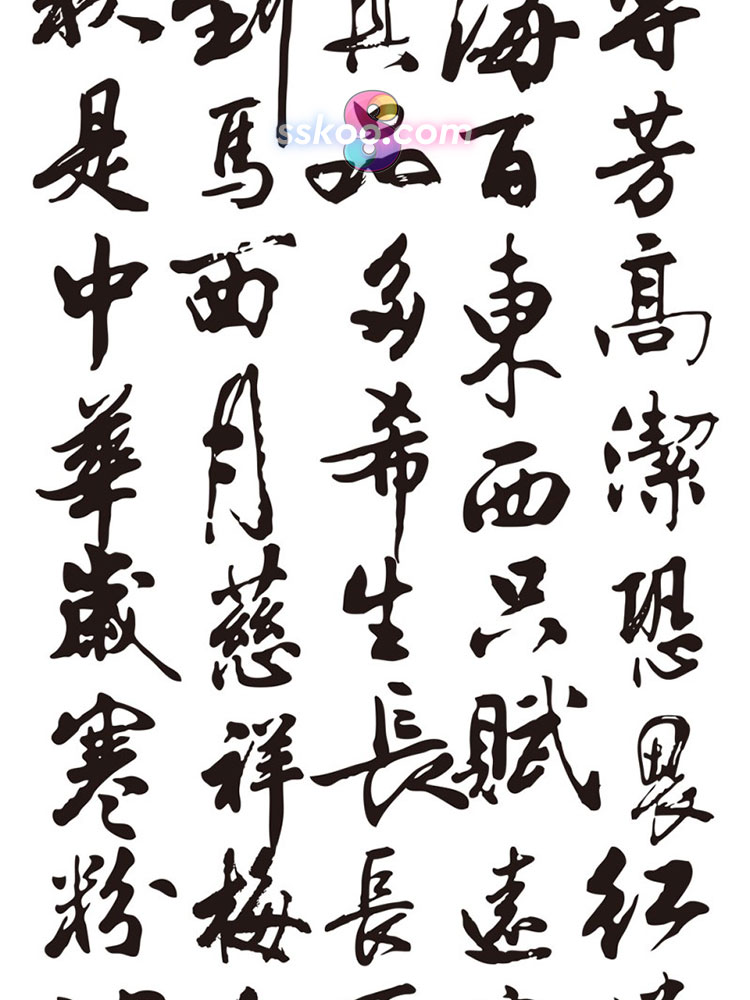 到 海
sskoo.com
是 馬 百 芳
中 西 多 東 高
華 月 希 西 潔
歲 慈 生 只 恐
寒 祥 長 賦 畏
粉 梅 長 遠 紅